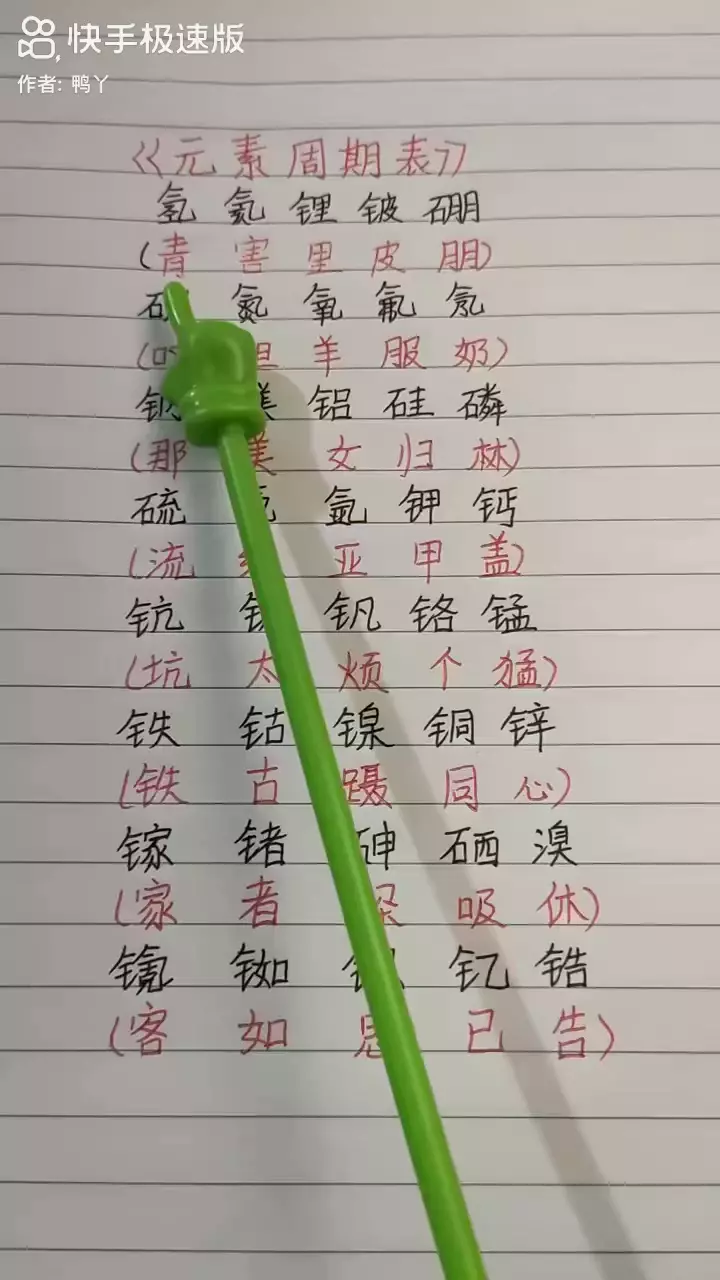 快手极速版
作者: 鸭丫
《元素周期表》
氢 氦 锂 铍 硼
(青 害 里 皮 朋)
氮 氧 氟 氖
(羊 服 奶)
镁 铝 硅 磷
(那 美 女 归 林)
硫 氩 钾 钙
(流 亚 甲 盖)
钪 钒 铬 锰
(坑 太 烦 个 猛)
铁 钴 镍 铜 锌
(铁 古 蹑 同 心)
镓 锗 砷 硒 溴
(家 者 吸 休)
铷 钇 锆
(客 如 已 告)